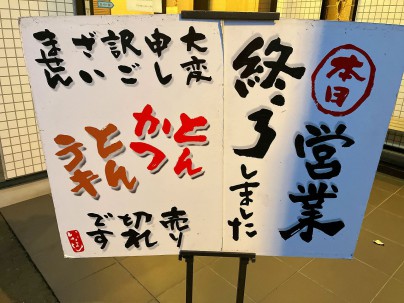 本日
営業
終了しました
大変
申し
訳ご
ざい
ません
とん
かつ
とん
テキ
売り
切れ
です